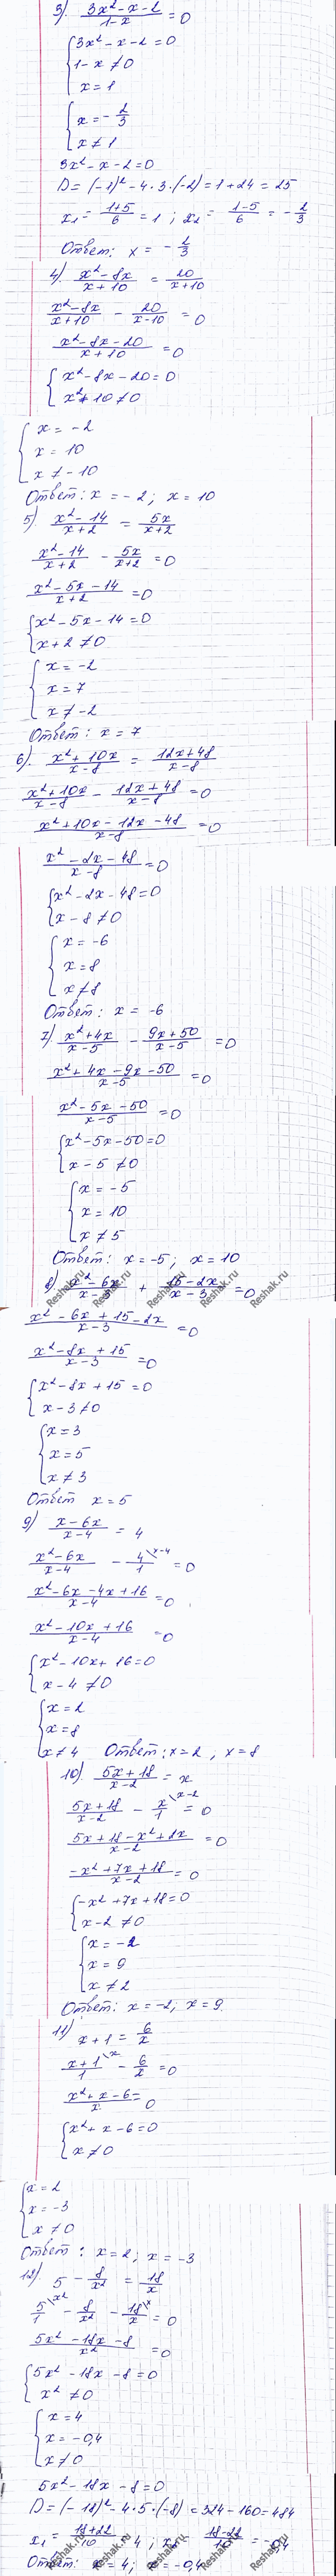 3) (3x² - x - 2)/(1-x) = 0
{3x² - x - 2 = 0
1 - x ≠ 0
x = 1
{x = -2/3
x ≠ 1
3x² - x - 2 = 0
D = (-1)² - 4·3·(-2) = 1 + 24 = 25
x₁ = (1+5)/6 = 1 ; x₂ = (1-5)/6 = -2/3
Ответ: x = -2/3
4) (x² - 8x)/(x+10) = 20/(x+10)
(x² - 8x)/(x+10) - 20/(x-10) = 0
(x² - 8x - 20)/(x+10) = 0
{x² - 8x - 20 = 0
x² + 10 ≠ 0
{x = -2
x = 10
x ≠ -10
Ответ: x = -2; x = 10
5) (x² - 14)/(x+2) = 5x/(x+2)
(x² - 14)/(x+2) - 5x/(x+2) = 0
(x² - 5x - 14)/(x+2) = 0
{x² - 5x - 14 = 0
x + 2 ≠ 0
{x = -2
x = 7
x ≠ -2
Ответ: x = 7
6) (x² + 10x)/(x-8) = (12x + 48)/(x-8)
(x² + 10x)/(x-8) - (12x + 48)/(x-8) = 0
(x² + 10x - 12x - 48)/(x-8) = 0
(x² - 2x - 48)/(x-8) = 0
{x² - 2x - 48 = 0
x - 8 ≠ 0
{x = -6
x = 8
x ≠ 8
Ответ: x = -6
7) (x² + 4x)/(x-5) - (9x + 50)/(x-5) = 0
(x² + 4x - 9x - 50)/(x-5) = 0
(x² - 5x - 50)/(x-5) = 0
{x² - 5x - 50 = 0
x - 5 ≠ 0
{x = -5
x = 10
x ≠ 5
Ответ: x = -5; x = 10
8) (x² - 6x)/(x-3) + (15 - 2x)/(x-3) = 0
Reshak.ru Reshak.ru Reshak.ru Reshak.ru
(x² - 6x + 15 - 2x)/(x-3) = 0
(x² - 8x + 15)/(x-3) = 0
{x² - 8x + 15 = 0
x - 3 ≠ 0
{x = 3
x = 5
x ≠ 3
Ответ x = 5
9) (x - 6x)/(x-4) = 4
(x² - 6x)/(x-4) - 4/1 \x-4 = 0
(x² - 6x - 4x + 16)/(x-4) = 0
(x² - 10x + 16)/(x-4) = 0
{x² - 10x + 16 = 0
x - 4 ≠ 0
{x = 2
x = 8
x ≠ 4 Ответ: x = 2, x = 8
10) (5x + 18)/(x-2) = x
(5x + 18)/(x-2) - x/1 \x-2 = 0
(5x + 18 - x² + 2x)/(x-2) = 0
(-x² + 7x + 18)/(x-2) = 0
{-x² + 7x + 18 = 0
x - 2 ≠ 0
{x = -2
x = 9
x ≠ 2
Ответ: x = -2; x = 9.
11) x + 1 = 6/x
(x+1)/1 \x - 6/x = 0
(x² + x - 6)/x = 0
{x² + x - 6 = 0
x ≠ 0
{x = 2
x = -3
x ≠ 0
Ответ: x = 2; x = -3
12) 5 - 8/x² = 18/x
5/1 \x² - 8/x² - 18/x \x = 0
(5x² - 18x - 8)/x² = 0
{5x² - 18x - 8 = 0
x² ≠ 0
{x = 4
x = -0,4
x ≠ 0
5x² - 18x - 8 = 0
D = (-18)² - 4·5·(-8) = 324 - 160 = 484
x₁ = (18+22)/10 = 4 ; x₂ = (18-22)/10 = -0,4
Ответ: x = 4; x = -0,4
Reshak.ru Reshak.ru Reshak.ru Reshak.ru